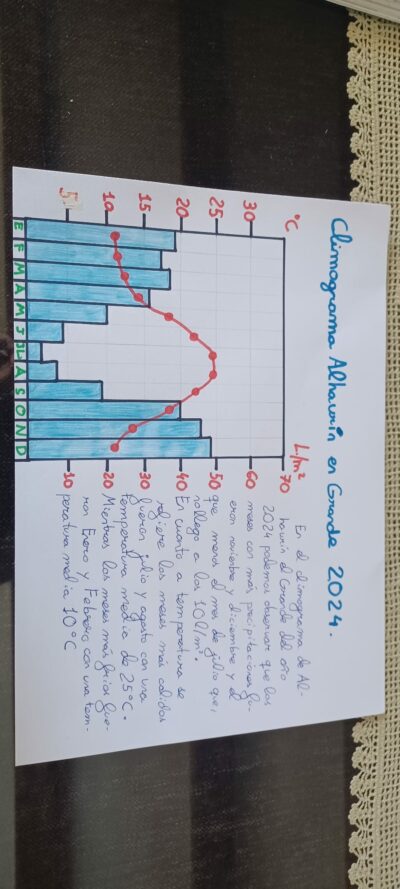 Climograma Alhaurín en Grande 2024.
°C
L/m²
30
25
20
15
10
5
70
60
50
40
30
20
10
E F M A M J JL A S O N D
En el climograma de Al-
haurín el Grande del año
2024 podemos observar que los
meses con más precipitaciones fu-
eron noviembre y diciembre y el
que menos el mes de julio que,
no llego a los 10 l/m².
En cuanto a temperatura se
refiere los meses más calidos
fueron julio y agosto con una
temperatura media de 25°C.
Mientras los meses mas frios fue-
ron Enero y Febrero con una tem-
peratura media 10°C